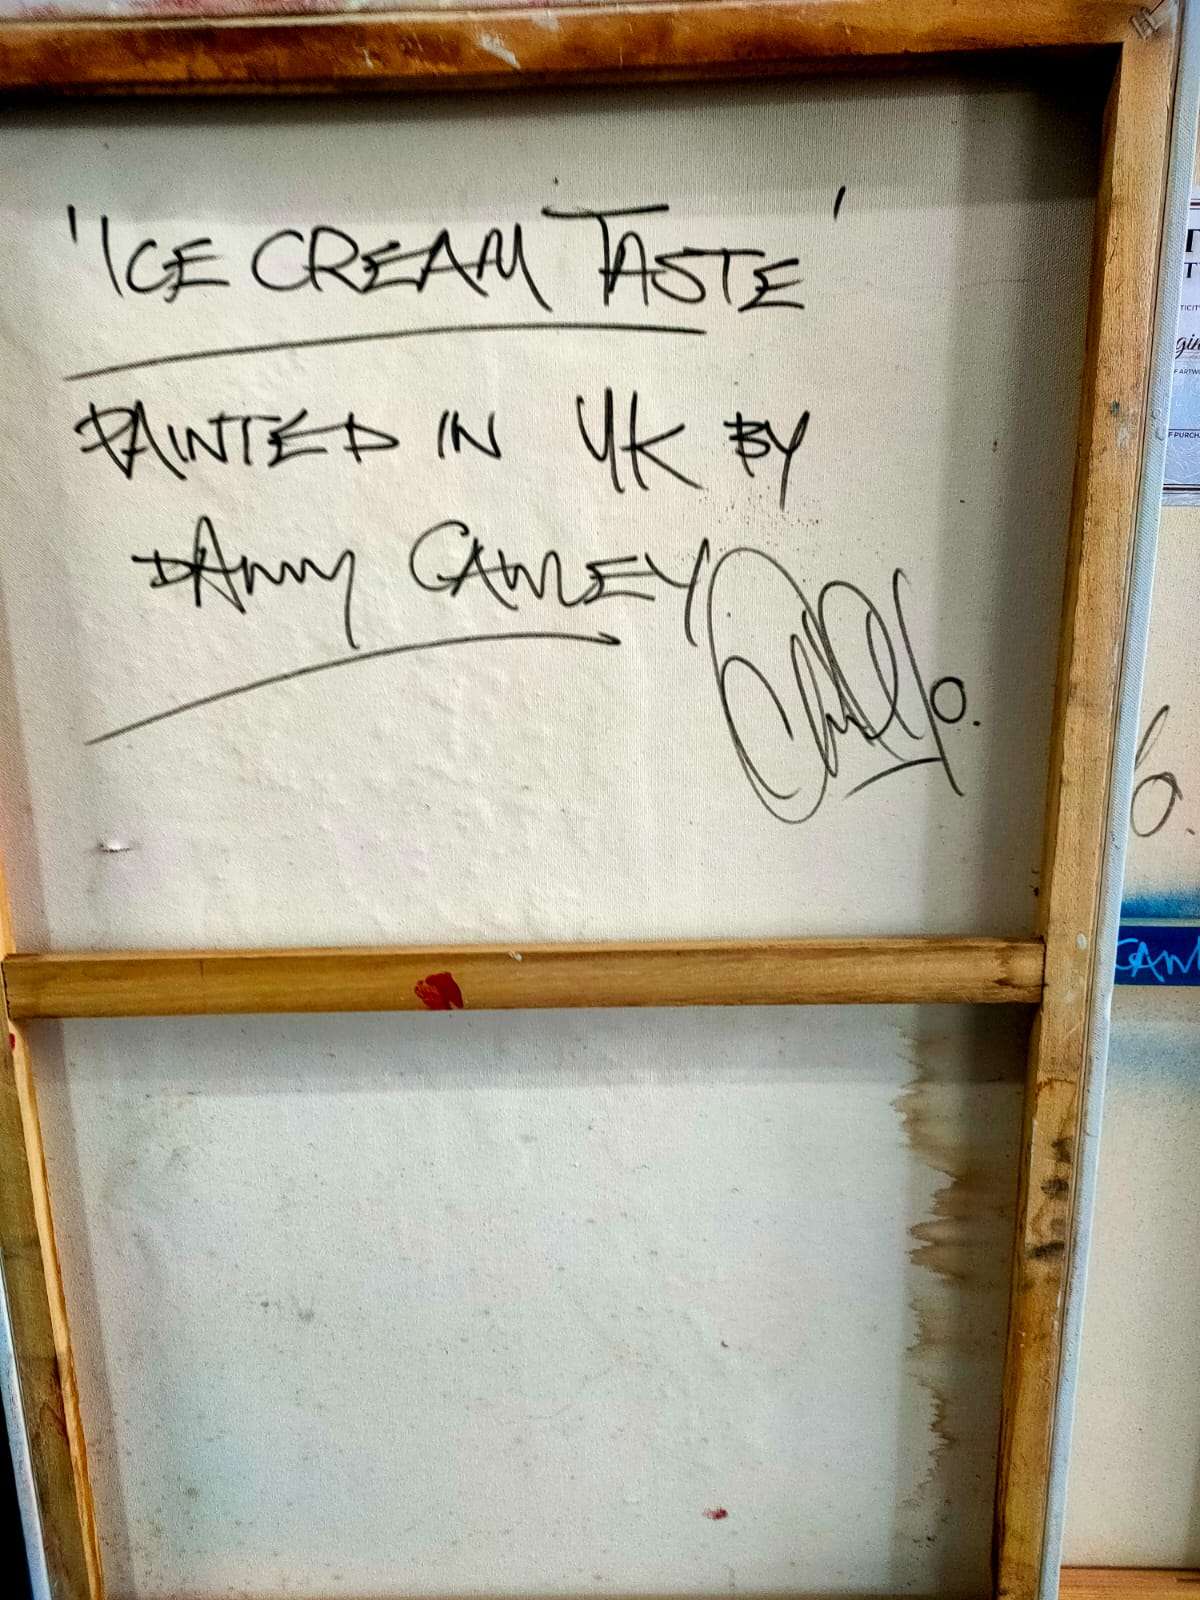 'ICE CREAM TASTE'
PAINTED IN UK BY
DANNY CAWLEY
CAW